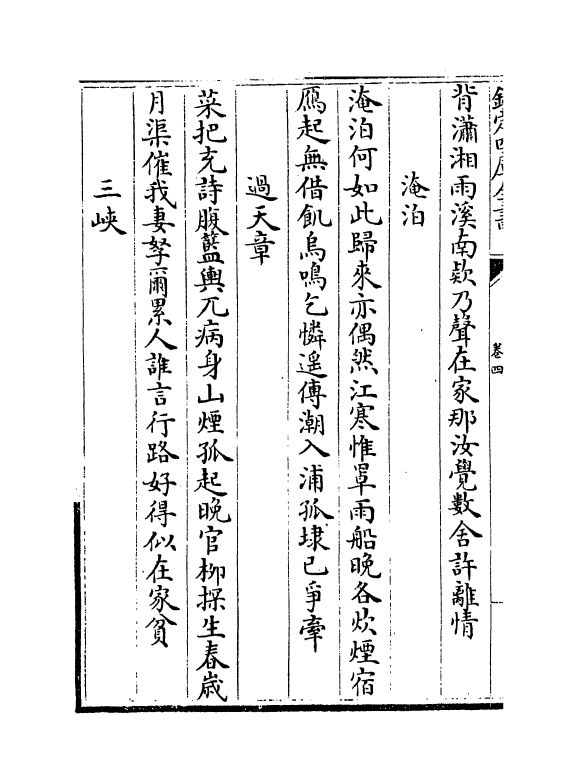 欽定四庫全書
卷四
背瀟湘雨溪南欵乃聲在家那汝覺數舍許離情
淹泊
淹泊何如此歸來亦偶然江寒惟罩雨船晚各炊煙宿
鴈起無借飢烏鳴乞憐遥傳潮入浦孤埭已爭牽
過天章
菜把充詩腹藍輿兀病身山煙孤起晚官栁探生春歳
月渠催我妻孥爾累人誰言行路好得似在家貧
三峽